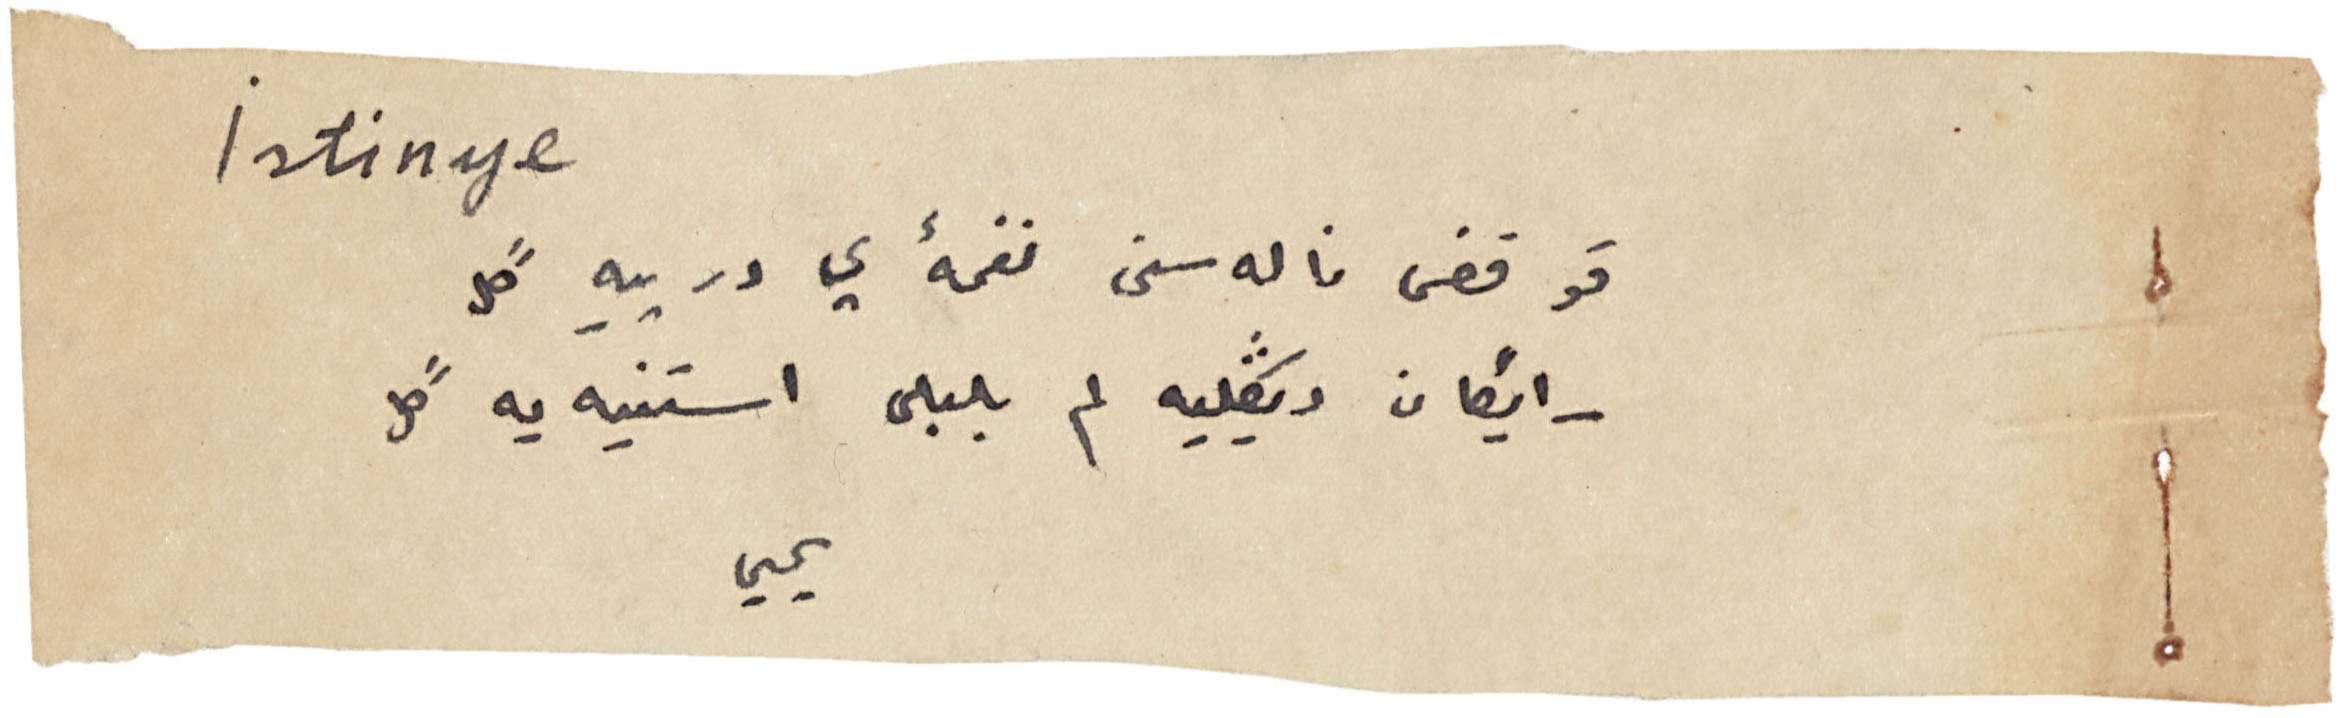 İstinye
قو قفس ناله سنی نغمۀ نی در یییه گل
رایگان دیڭلیه لم بلبلی استنیه یه گل
یحیی